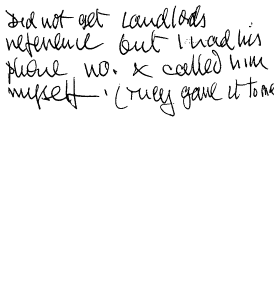 Did not get Landlods
reference but I had his
phone no. & called him
myself. (They gave it to me